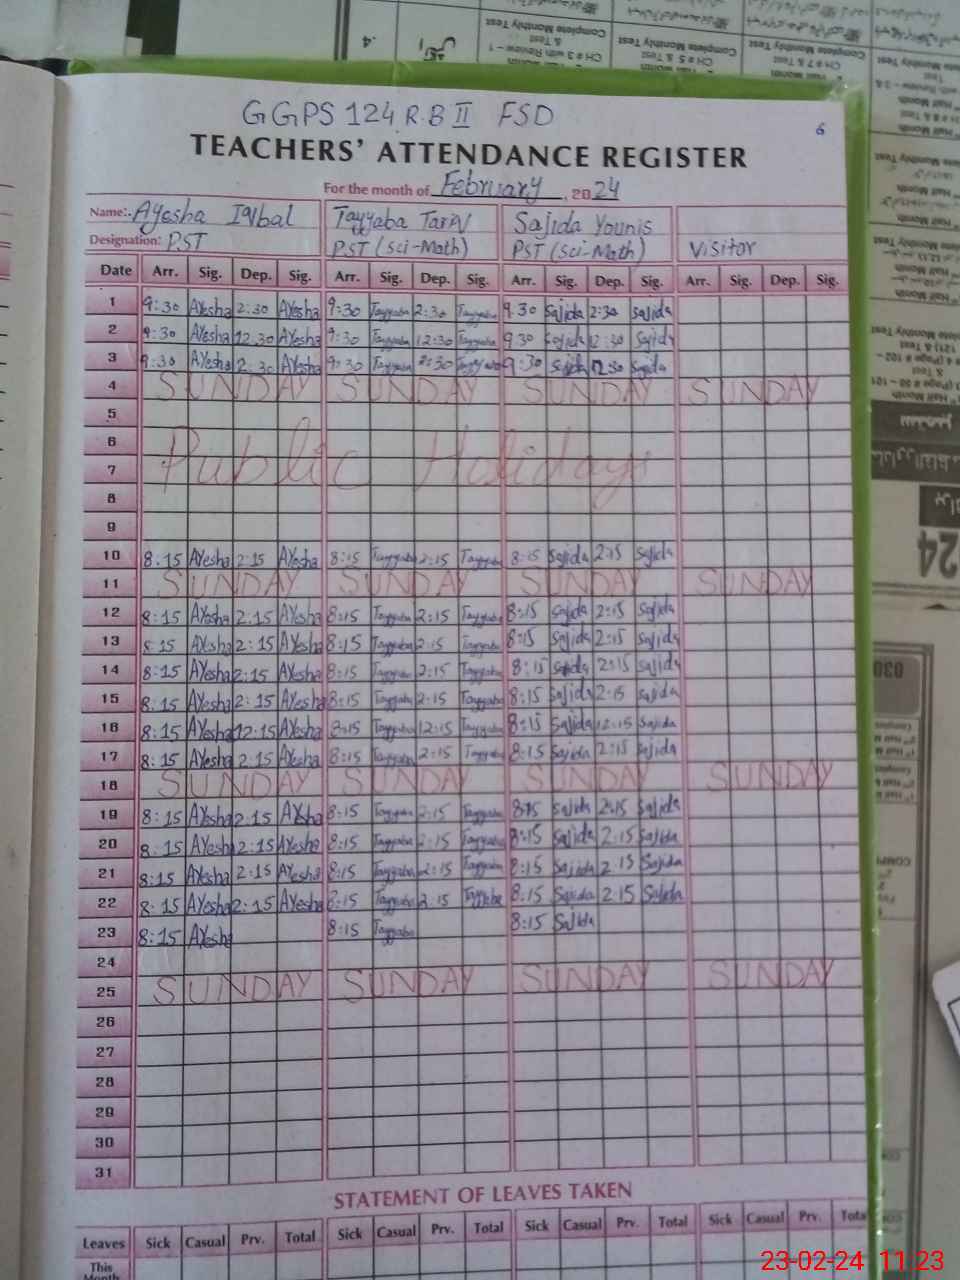 GGPS 124 R.B II FSD
6
TEACHERS' ATTENDANCE REGISTER
For the month of February, 2024
Name:- Ayesha Iqbal Tayyaba Tariq Sajida Younis
Designation: PST PST (Sci-Math) PST (Sci-Math) Visitor
Date Arr. Sig. Dep. Sig. Arr. Sig. Dep. Sig. Arr. Sig. Dep. Sig. Arr. Sig. Dep. Sig.
1 9:30 Ayesha 2:30 Ayesha 9:30 Tayyaba 2:30 Tayyaba 9.30 Sajida 2:30 Sajida
2 9:30 Ayesha 12.30 Ayesha 9:30 Tayyaba 12:30 Tayyaba 9 30 Sajida 12:30 Sajida
3 9:30 Ayesha 2:30 Ayesha 9:30 Tayyaba 2:30 Tayyaba 9:30 Sajida Sajida
4 SUNDAY SUNDAY SUNDAY SUNDAY
5
6
7 Public Holidays
8
9
10 8:15 Ayesha 2:15 Ayesha 8:15 Tayyaba 2:15 Tayyaba 8:15 Sajida 2:15 Sajida
11 SUNDAY SUNDAY SUNDAY SUNDAY
12 8:15 Ayesha 2:15 Ayesha 8:15 Tayyaba 2:15 Tayyaba 8:15 Sajida 2:15 Sajida
13 8:15 Ayesha 2:15 Ayesha 8:15 Tayyaba 2:15 Tayyaba 8:15 Sajida 2:15 Sajida
14 8:15 Ayesha 2:15 Ayesha 8:15 Tayyaba 2:15 Tayyaba 8:15 Sajida 2:15 Sajida
15 8:15 Ayesha 2:15 Ayesha 8:15 Tayyaba 2:15 Tayyaba 8:15 Sajida 2:15 Sajida
16 8:15 Ayesha 12:15 Ayesha 8:15 Tayyaba 12:15 Tayyaba 8:15 Sajida 12:15 Sajida
17 8:15 Ayesha 2:15 Ayesha 8:15 Tayyaba 2:15 Tayyaba 8:15 Sajida 2:15 Sajida
18 SUNDAY SUNDAY SUNDAY SUNDAY
19 8:15 Ayesha 2:15 Ayesha 8:15 Tayyaba 2:15 Tayyaba 8:15 Sajida 2:15 Sajida
20 8:15 Ayesha 2:15 Ayesha 8:15 Tayyaba 2:15 Tayyaba 8:15 Sajida 2:15 Sajida
21 8:15 Ayesha 2:15 Ayesha 8:15 Tayyaba 2:15 Tayyaba 8:15 Sajida 2 15 Sajida
22 8:15 Ayesha 2:15 Ayesha 8:15 Tayyaba 2:15 Tayyaba 8:15 Sajida 2:15 Sajida
23 8:15 Ayesha 8:15 Tayyaba 8:15 Sajida
24
25 SUNDAY SUNDAY SUNDAY SUNDAY
26
27
28
29
30
31
STATEMENT OF LEAVES TAKEN
Leaves Sick Casual Prv. Total Sick Casual Prv. Total Sick Casual Prv. Total Sick Casual Prv. Tota
This
Month
23-02-24 11:23